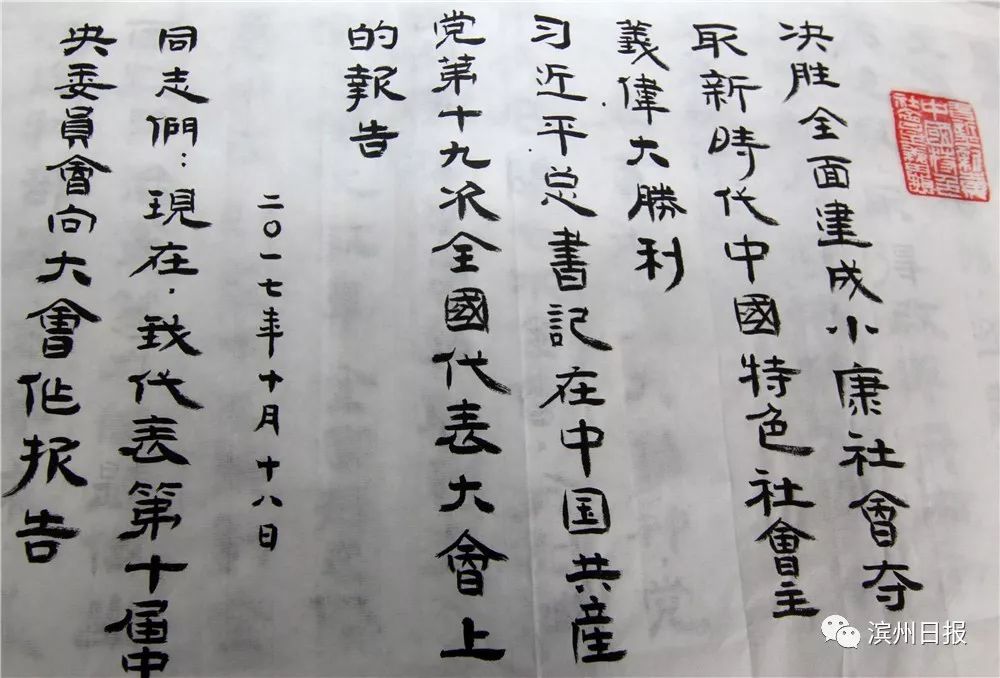 决胜全面建成小康社會夺
取新時代中國特色社會主
義偉大勝利
习近平总書記在中国共産
党第十九次全國代表大會上
的報告
二〇一七年十月十八日
同志們：現在，我代表第十届中
央委員會向大會作报告
中國特色
滨州日报